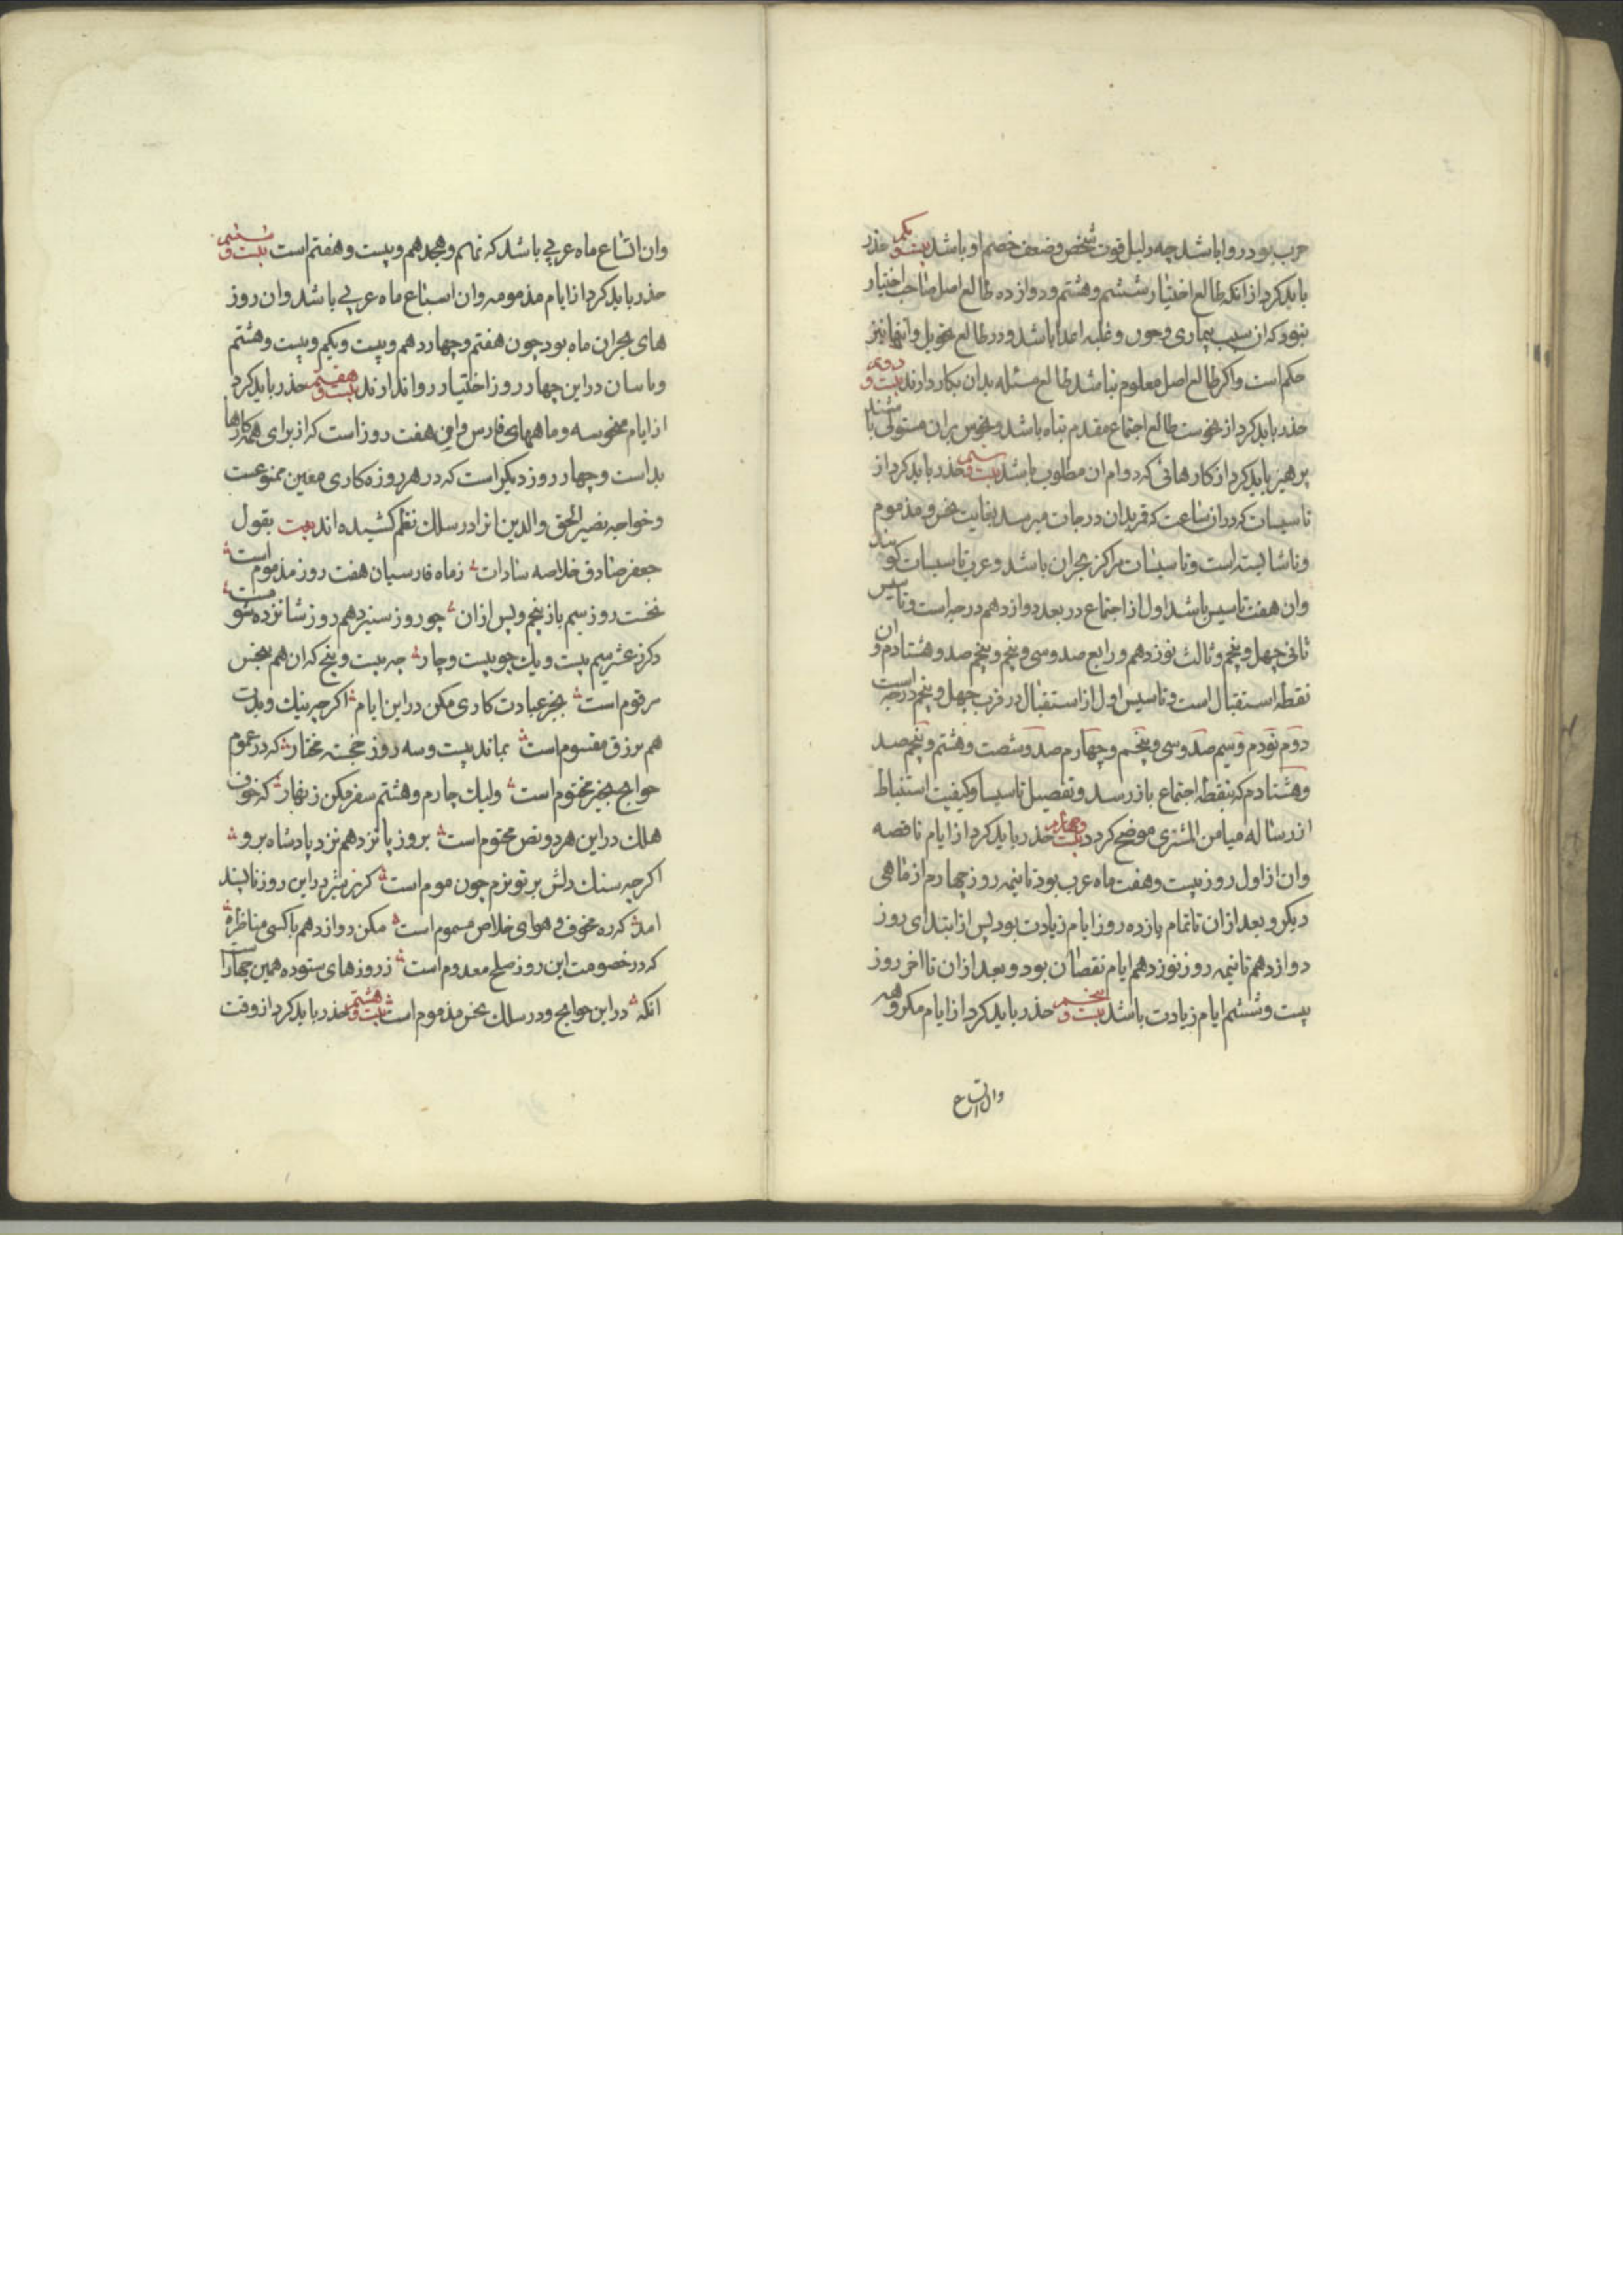 حرب بود روا باشد چه دلیل قوت شخص و ضعف خصم او باشد بیست و یکم حذر
باید کرد از انکه طالع اختیار ششم و هشتم و دوازده طالع اصل صاحب اختیار
بنود که ان سبب بیماری و خون و غلبه اعدا باشد و در طالع تحویل و انتها نیز
حکم است و اکر طالع اصل معلوم نباشد طالع مسئله بدان بکار دارند بیست و دوم
حذر باید کرد از نحوست طالع اجتماع مقدم تباه باشد و نحوس بران مستولی باشند
پرهیز باید کرد از کارهائی که دوام ان مطلوب باشد بیست و سیم حذر باید کرد از
تاسیسات که در ان ساعت که قمر بدان درجات میرسد بغایت نحس و مذموم
و ناشایسته است و تاسیسات مراکز بحران باشد و عرب تاسیسات کویند
وان هفت تاسیس باشد اول از اجتماع در بعد دوازدهم درجه است و تاسیس
ثانی چهل و پنجم و ثالث نوزدهم و رابع صد و سی و پنجم و پنجم صد و هشتادم و ان
نقطه استقبال است و تاسیس اول از استقبال در قرب چهل و پنجم درجه است
دوم نودم و سیم صد و سی و پنجم و چهارم صد و شصت و هشتم و پنجم صد
و هشتادم که بنقطه اجتماع باز رسد و تفصیل تاسیسا و کیفیت استنباط
از رساله میامن المشتری موضح کردد بیست و چهارم حذر باید کرد از ایام ناقصه
وان از اول روز بیست و هفت ماه عرب بود تا نیمه روز چهارم از ماهی
دیکر و بعد از ان تا تمام یازده روز ایام زیادت بود پس از ابتدای روز
دوازدهم تا نیمه روز نوزدهم ایام نقصان بود و بعد از ان تا اخر روز
بیست و ششم ایام زیادت باشد بیست و پنجم حذر باید کرد از ایام مکروهه
وان اتساع
وان اتساع ماه عربی باشد که نهم و هجدهم و بیست و هفتم است بیست و ششم
حذر باید کرد از ایام مذمومه وان اسباع ماه عربی باشد وان روز
های بحران ماه بود چون هفتم و چهاردهم و بیست و یکم و بیست و هشتم
و در این چهار روز اختیار روا ندارند بیست و هفتم حذر باید کرد
از ایام منحوسه و ماههای فارس و این هفت روز است که از برای همه کارها
بد است و چهار روز دیکر است که در هر روزه کاری معین ممنوعست
و خواجه نصیر الحق والدین انرا در سلک نظم کشیده اند بیت بقول
جعفر صادق خلاصه سادات زماه فارسیان هفت روز مذموم است
نخست روز سیم باز پنجم و پس از ان چو روز سیزدهم روز شانزده شومست
دکر ز عشر سیم بیست و یک چو بیست و چار چه بیست و پنج که ان هم بنحس
مرقوم است بجز عبادت کاری مکن در این ایام اکر چه نیک و بدت
هم برزق مقسوم است بماند بیست و سه روز خجسته مختار که در عموم
حوایج بخیر مختوم است ولیک چارم و هشتم سفر مکن زنهار که خوف
هلک در این هر دو نص محتوم است بروز پانزدهم نزد پادشاه برو
اکر چه سنک دلش بر تو نرم چون موم است کریز نیز در این روز ناپسند
امد که ره مخوف و هوای خلاص مسموم است مکن دوازدهم با کسی مناظره
که در خصومت این روز صلح معدوم است ز روزهای ستوده همین چهار است
انکه در این حوایج و در سلک نحس مذموم است بیست و هشتم حذر باید کرد از وقت